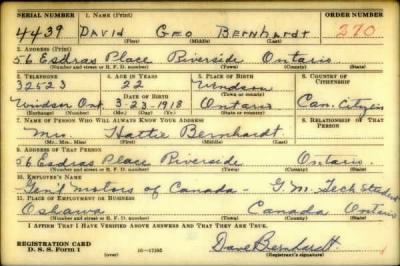 SERIAL NUMBER 1. NAME (Print) ORDER NUMBER
4439 DAVID GEO BERNHARDT 270
(First) (Middle) (Last)
2. ADDRESS (Print)
56 Esdras Place Riverside Ontario
(Number and street or R. F. D. number) (Town) (County) (State)
3. TELEPHONE 4. AGE IN YEARS 5. PLACE OF BIRTH 6. COUNTRY OF CITIZENSHIP
32523 22 Windsor
DATE OF BIRTH (Town or county)
Windsor Ont. 3-23-1918 Ontario Can. Citizen
(Exchange) (Number) (Mo.) (Day) (Yr.) (State or country)
7. NAME OF PERSON WHO WILL ALWAYS KNOW YOUR ADDRESS 8. RELATIONSHIP OF THAT PERSON
Mrs. Hattie Bernhardt.
(Mr., Mrs., Miss) (First) (Middle) (Last)
9. ADDRESS OF THAT PERSON
56 Esdras Place Riverside Ontario.
(Number and street or R. F. D. number) (Town) (County) (State)
10. EMPLOYER'S NAME
Gen'l Motors of Canada - G.M. Tech Student
11. PLACE OF EMPLOYMENT OR BUSINESS
Oshawa Canada Ontario
(Number and street or R. F. D. number) (Town) (County) (State)
I AFFIRM THAT I HAVE VERIFIED ABOVE ANSWERS AND THAT THEY ARE TRUE.
REGISTRATION CARD
D. S. S. Form 1 (over) 16-17105 Dave Bernhardt.
(Registrant's signature)